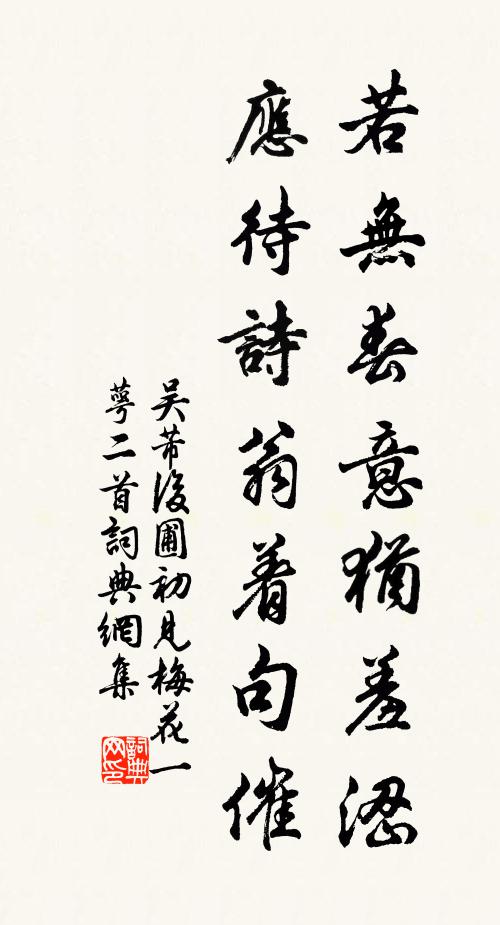 若無春意猶羞澀
應待詩翁着句催
吴芾後圃初見梅花一
萼二首詞典網集
詞典網印